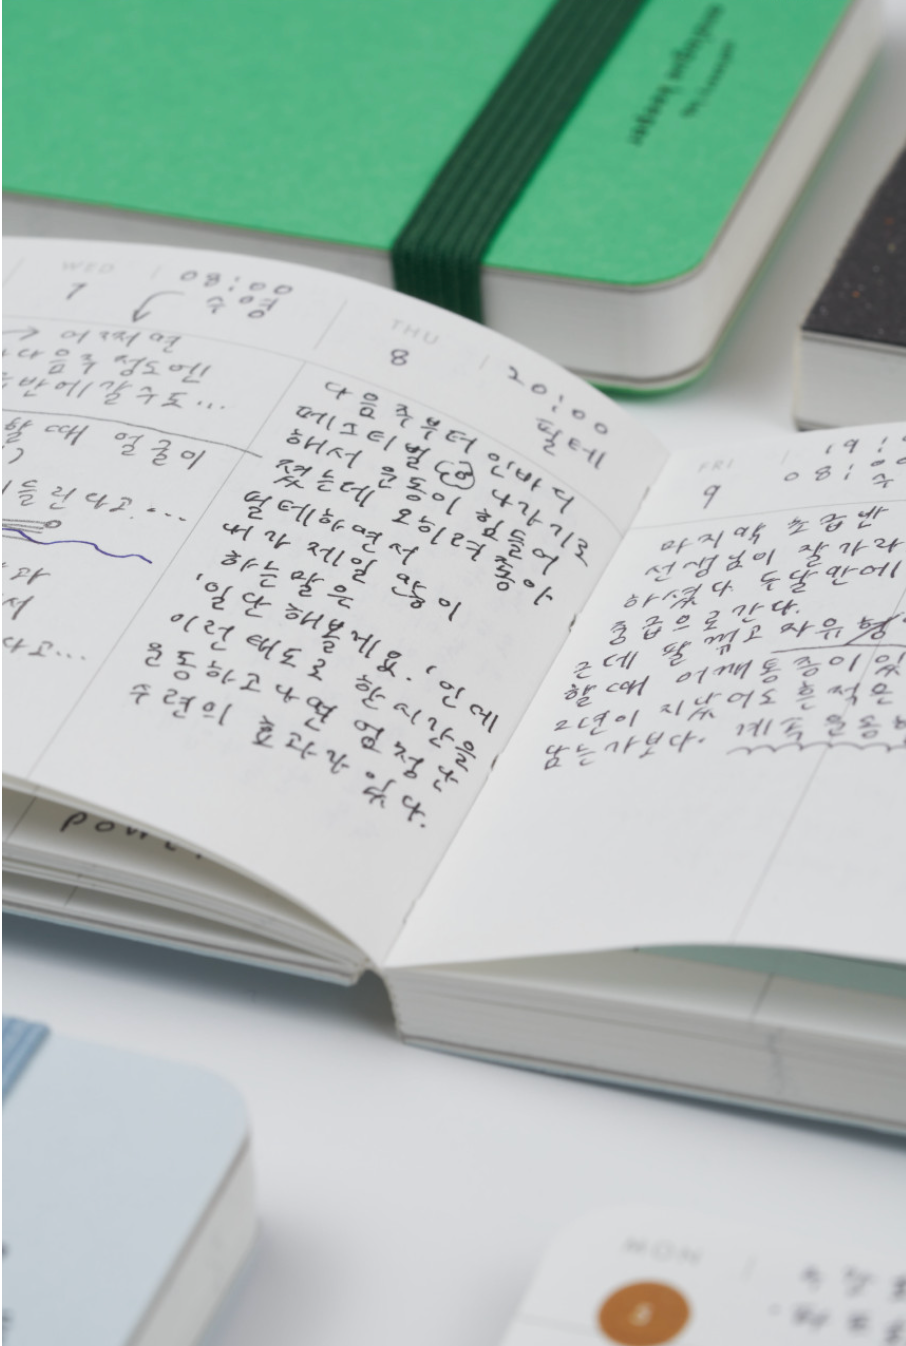 WED
7
08:00
수영
→ 어쩌면
다음주 정도엔
반에 갈 수도...
할 때 얼굴이
들린다고...
THU
8
20:00
필테
다음주부터 인바디
페스티벌 나가기로
해서 운동이 힘들어
졌는데 오히려 좋아
필테하면서
내가 제일 많이
하는 말은
'일단 해볼게요.' 인데
이런 태도로 한시간을
운동하고나면 엄청난
수련의 효과가 있다.
FRI
9
08:00
마지막 초급반
선생님이 잘가라
하셨다 두달만에
중급으로 간다.
근데 팔 꺾고 자유형
할때 어깨통증이 있
2년이 지났어도 흔적은
남는가보다. 계속 운동
MON